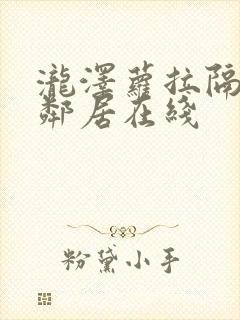 瀧澤蘿拉隔
鄰居在綫
粉黛小手